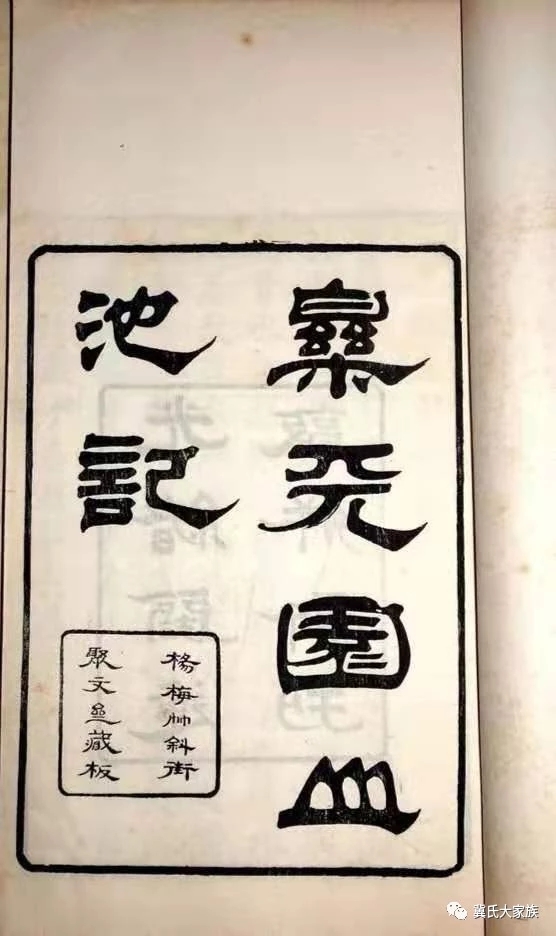 樂園山
池記
楊梅竹斜街
聚文藏板
冀氏大家族